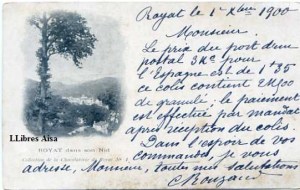 Royat le 1er Xbre 1900
Monsieur.
Le prix du port d'un
postal 3K° pour
l'Espagne est de 1f35
ce colis contient 2K500
de granulé; le paiement
est effectué par mandat
après réception du colis.
Dans l'espoir de vos
commandes, je vous
adresse, Monsieur, toutes mes salutations
LLibres Aisa
ROYAT
Collection de la